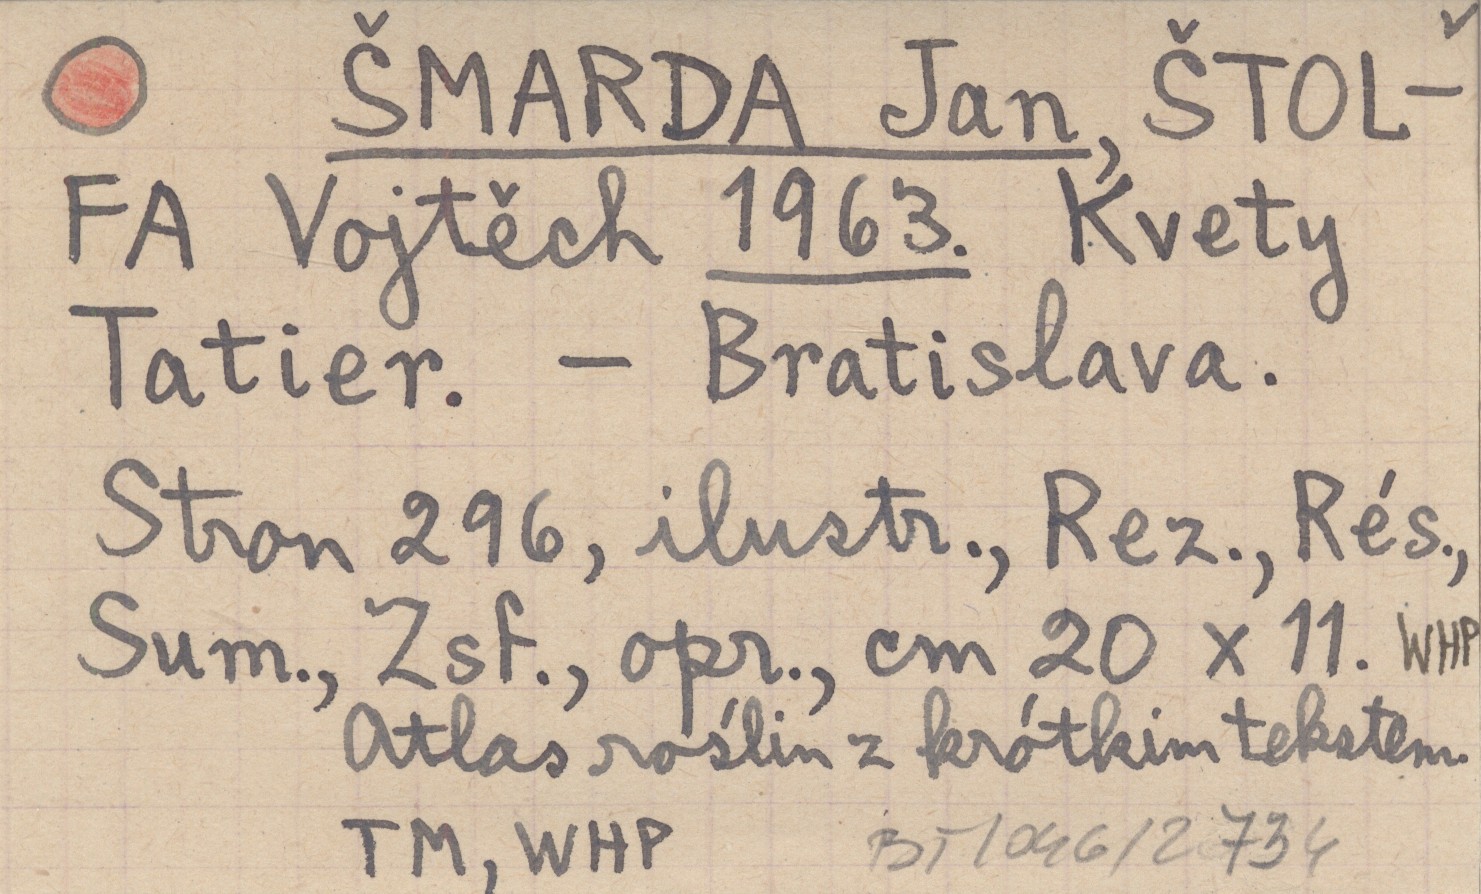 ŠMARDA Jan, ŠTOL-
FA Vojtěch 1963. Kvety
Tatier. – Bratislava.
Stron 296, ilustr., Rez., Rés.,
Sum., Zsf., opr., cm 20 x 11. WHP
Atlas roślin z krótkim tekstem.
TM, WHP BT/046/2734